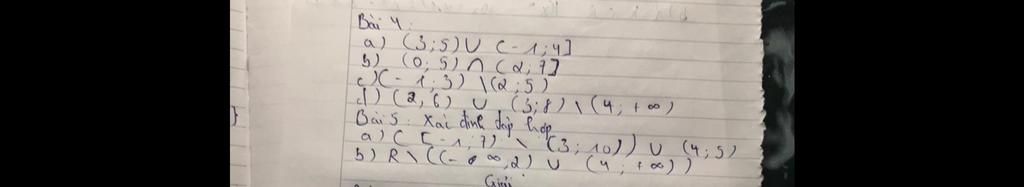 Bài 4:
a) (3;5) ∪ (-1;4]
b) (0;5) ∩ (2;7]
c) (-1;3) \ (2;5)
d) (2,6) ∪ (3;8) \ (4;+∞)
Bài 5: Xác định tập hợp
a) ( [-1;7) \ (3;10)) ∪ (4;5)
b) R \ ((-∞,2) ∪ (4;+∞))
Giải
}